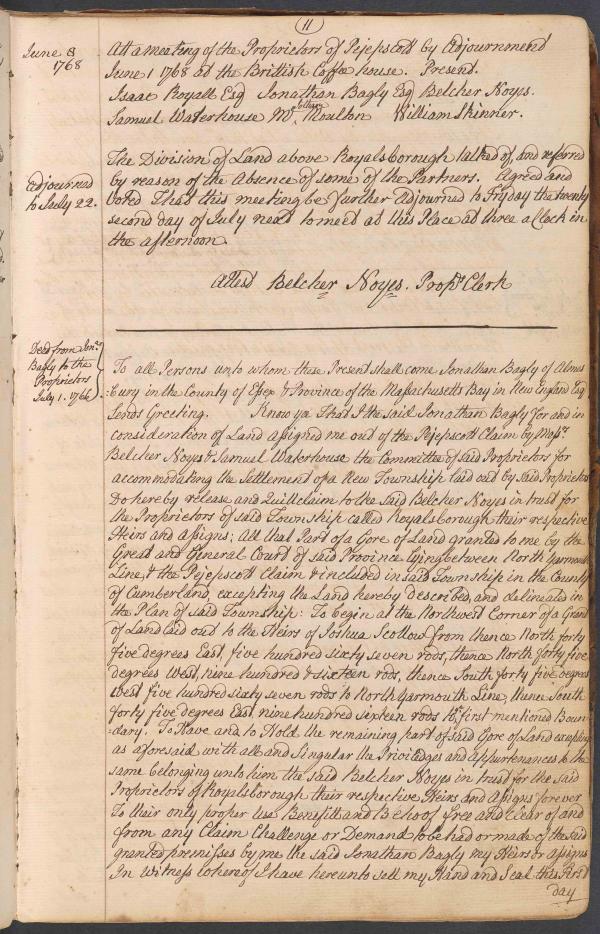 11
June 8
1768
Att a meeting of the Proprietors of Pejepscott by Adjournment
June 1 1768 at the Brittish Coffee house. Present.
Isaac Royall Esq Jonathan Bagly Esq Belcher Noyes.
Samuel Waterhouse Mr Moulton William Skinner.
Adjourned
to July 22.
The Division of Land above Royalsborough talked of, and referred
by reason of the Absence of some of the Partners. Agreed and
Voted That this meeting be further Adjourned to Fryday the twenty
second day of July next to meet at this Place at three a Clock in
the afternoon
Attest Belcher Noyes. Proprs Clerk
Deed from Jonn
Bagly to the
Proprietors
July 1. 1766
To all Persons unto whom these Present shall come Jonathan Bagly of Almes
=bury in the County of Essex & Province of the Massachusetts Bay in New England Esq
Sends Greeting. Know ye That I the said Jonathan Bagly for and in
consideration of Land assigned me out of the Pejepscott Claim by Messrs
Belcher Noyes & Samuel Waterhouse the Committee of said Proprietors for
accommodating the Settlement of a New Township laid out by said Proprietors
do hereby release and Quittclaim to the said Belcher Noyes in trust for
the Proprietors of said Township called Royalsborough their respective
Heirs and Assigns; All that Part of a Gore of Land granted to me by the
Great and General Court of said Province lying between North Yarmouth
Line, & the Pejepscott Claim & included in said Township in the County
of Cumberland, excepting the Land hereby described, and delineated in
the Plan of said Township: To begin at the Northwest Corner of a Grant
of Land laid out to the Heirs of Joshua Scottow, from thence North forty
five degrees East, five hundred sixty seven rods, thence North forty five
degrees West, nine hundred & sixteen rods, thence South forty five degrees
West five hundred sixty seven rods to North Yarmouth Line, thence South
forty five degrees East nine hundred sixteen rods to first mentioned Boun=
=dary. To Have and to Hold the remaining part of said Gore of Land excepting
as aforesaid with all and Singular the Priviledges and Appurtenances to the
same belonging unto him the said Belcher Noyes in trust for the said
Proprietors of Royalsborough their respective Heirs and Assigns forever
To their only proper Use Benefitt and Behoof free and Clear of and
from any Claim Challenge or Demand to be had or made of the said
granted premisses by me the said Jonathan Bagly my Heirs or Assigns
In Witness whereof I have hereunto sett my Hand and Seal this First
day